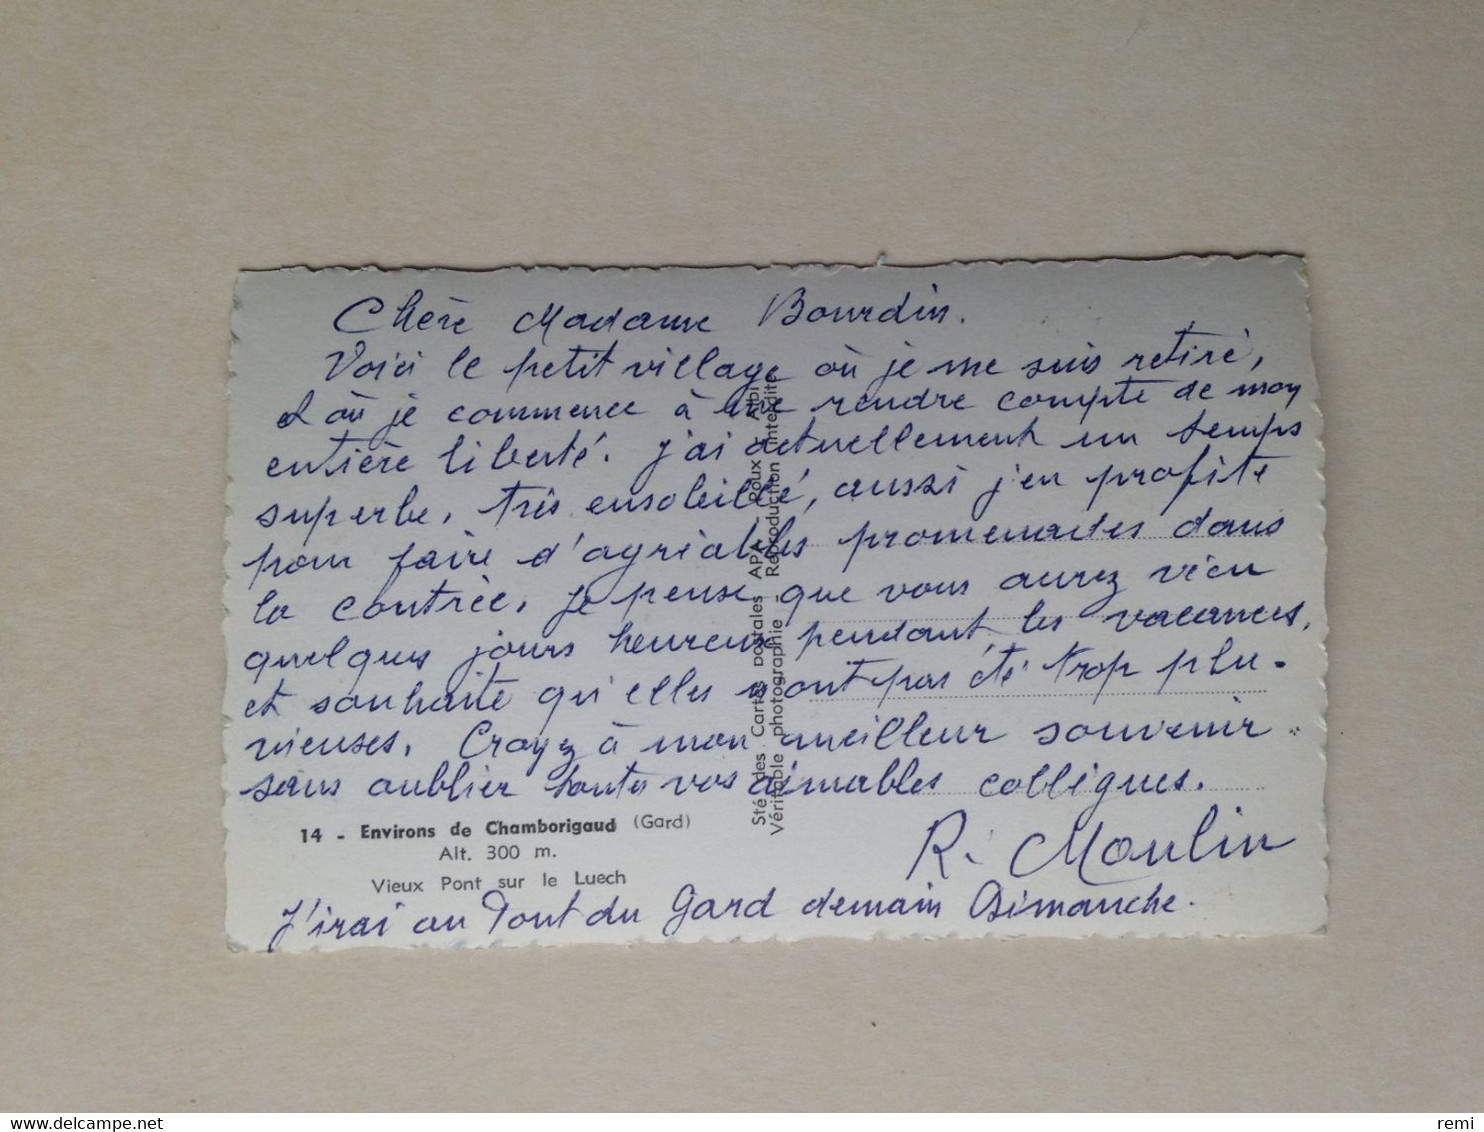 Chère Madame Bourdin.
Voici le petit village où je me suis retiré,
& où je commence à me rendre compte de mon
entière liberté. J'ai actuellement un temps
superbe, très ensoleillé, aussi j'en profite
pour faire d'agréables promenades dans
la contrée. Je pense que vous aurez vécu
quelques jours heureux pendant les vacances,
et souhaite qu'elles n'ont pas été trop plu-
vieuses. Croyez à mon meilleur souvenir
sans oublier toutes vos aimables collègues.
R. Moulin
14 - Environs de Chamborigaud (Gard)
Alt. 300 m.
Vieux Pont sur le Luech
J'irai au Pont du Gard demain Dimanche.
Sté des Cartes postales APA - Poux - Albi
Véritable photographie - Reproduction interdite
delcampe.net
remi